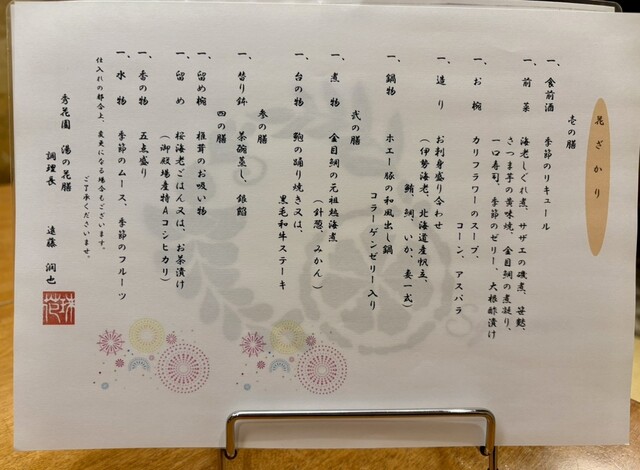 花ざかり
壱の膳
一、食前酒　季節のリキュール
一、前菜　海老しぐれ煮、サザエの磯煮、笹麩、
さつま芋の黄味焼、金目鯛の煮凝り、
一口寿司、季節のゼリー、大根酢漬け
一、お椀　カリフラワーのスープ、
コーン、アスパラ
一、造り　お刺身盛り合わせ
（伊勢海老、北海道産帆立、
鮪、鯛、いか、妻一式）
一、鍋物　ホエー豚の和風出し鍋
コラーゲンゼリー入り
弐の膳
一、煮物　金目鯛の元祖姿海煮
（針葱、みかん）
一、台の物　鮑の踊り焼き又は、
黒毛和牛ステーキ
参の膳
一、替り鉢　茶碗蒸し、銀餡
四の膳
一、留め椀　椎茸のお吸い物
一、留め　桜海老ごはん又は、お茶漬け
（御殿場産特Aコシヒカリ）
一、香の物　五点盛り
一、水物　季節のムース、季節のフルーツ
仕入れの都合上、変更になる場合もございます。
ご了承くださいませ。
秀花園　湯の花膳
調理長　遠藤　潤也